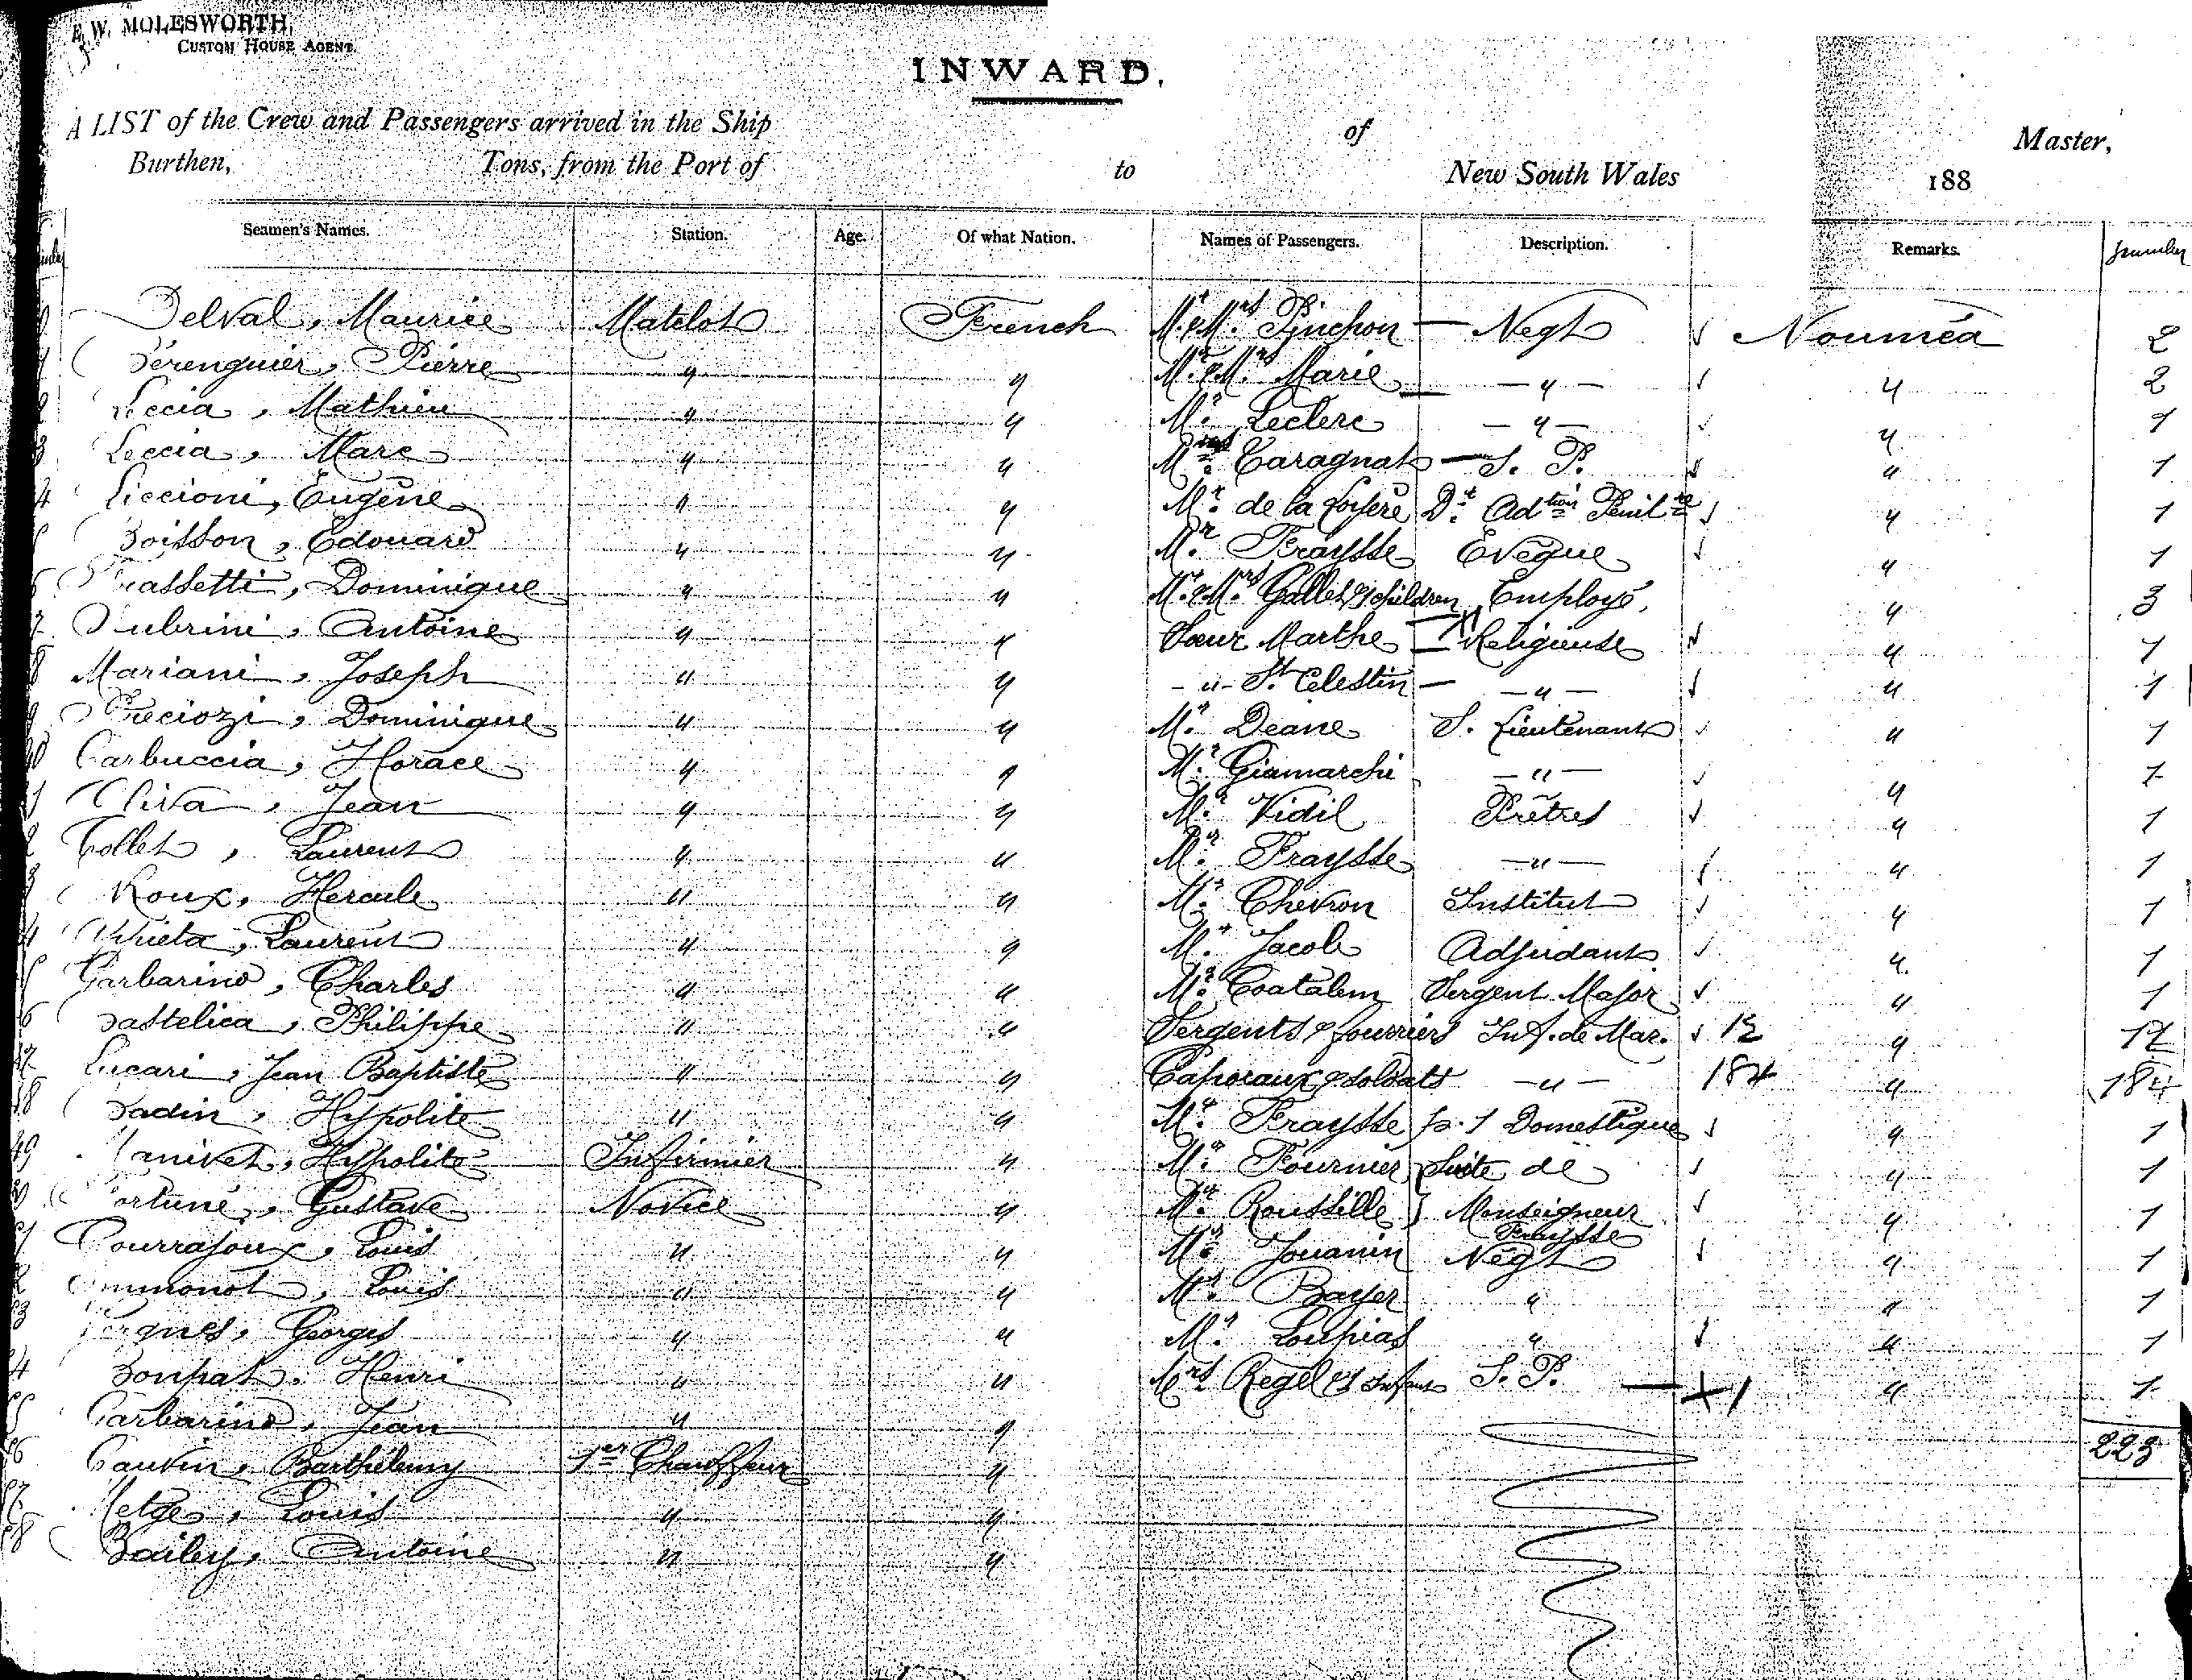 E. W. MOLESWORTH,
CUSTOM HOUSE AGENT.
INWARD.
A LIST of the Crew and Passengers arrived in the Ship of Master,
Burthen, Tons, from the Port of to New South Wales 188
Seamen's Names. Station. Age. Of what Nation. Names of Passengers. Description. Remarks. Number
Delval, Maurice Matelot French Mr. & Mrs. Pinchon — Negt Nouméa 2
Bérenguier, Pierre " " Mr. & Mrs. Marie — " — " 2
Leccia, Mathieu " " Mr. Leclerc — " — " 1
Leccia, Marc " " Mrs. Caragnat — S. P. " 1
Liccioni, Eugène " " Mr. de la Loyère Dr. Adtion Penitre " 1
Boisson, Edouard " " Mr. Fraysse Evêque " 1
Dominique " " Mr. & Mrs. Gallet & children Employé, " 3
Antoine " " Soeur Marthe — Religieuse " 1
Mariani, Joseph " " - " - St. Célestin — — " — " 1
Préciozi, Dominique " " Mr. Deane S. Lieutenant " 1
Carbuccia, Horace " " Mr. Giamarchi — " — " 1
Oliva, Jean " " Mr. Vidil Prêtres " 1
Collet, Laurent " " Mr. Fraysse — " — " 1
Roux, Hercule " " Mr. Chevron Institut " 1
Laurent " " Mr. Jacob Adjudant " 1
Garbarino, Charles " " Mr. Coatalem Sergent Major " 1
Bastelica, Philippe " " Sergents & fourriers Inf. de Mar. 12 " 12
Lucari, Jean Baptiste " " Caporaux & soldats — " — 184 " 184
Badin, Hyppolite " " Mr. Fraysse p. 1 Domestique " 1
Hyppolite Infirmier " Mr. Fournier } Suite de " 1
Fortuné, Gustave Novice " Mr. Roussille } Monseigneur " 1
Fraysse
Pourrajoux, Louis " " Mr. Jouanin Négt " 1
Louis " " Mr. Bayer " " 1
Georges " " Mr. Loupias " " 1
Bompat, Henri " " Mrs. Regel & 1 Infant S. P. — + 1 " 1
Garbarino, Jean " "
223
Gauvin, Barthélemy 1er Chauffeur "
Metge, Louis " "
Bailey, Antoine " "